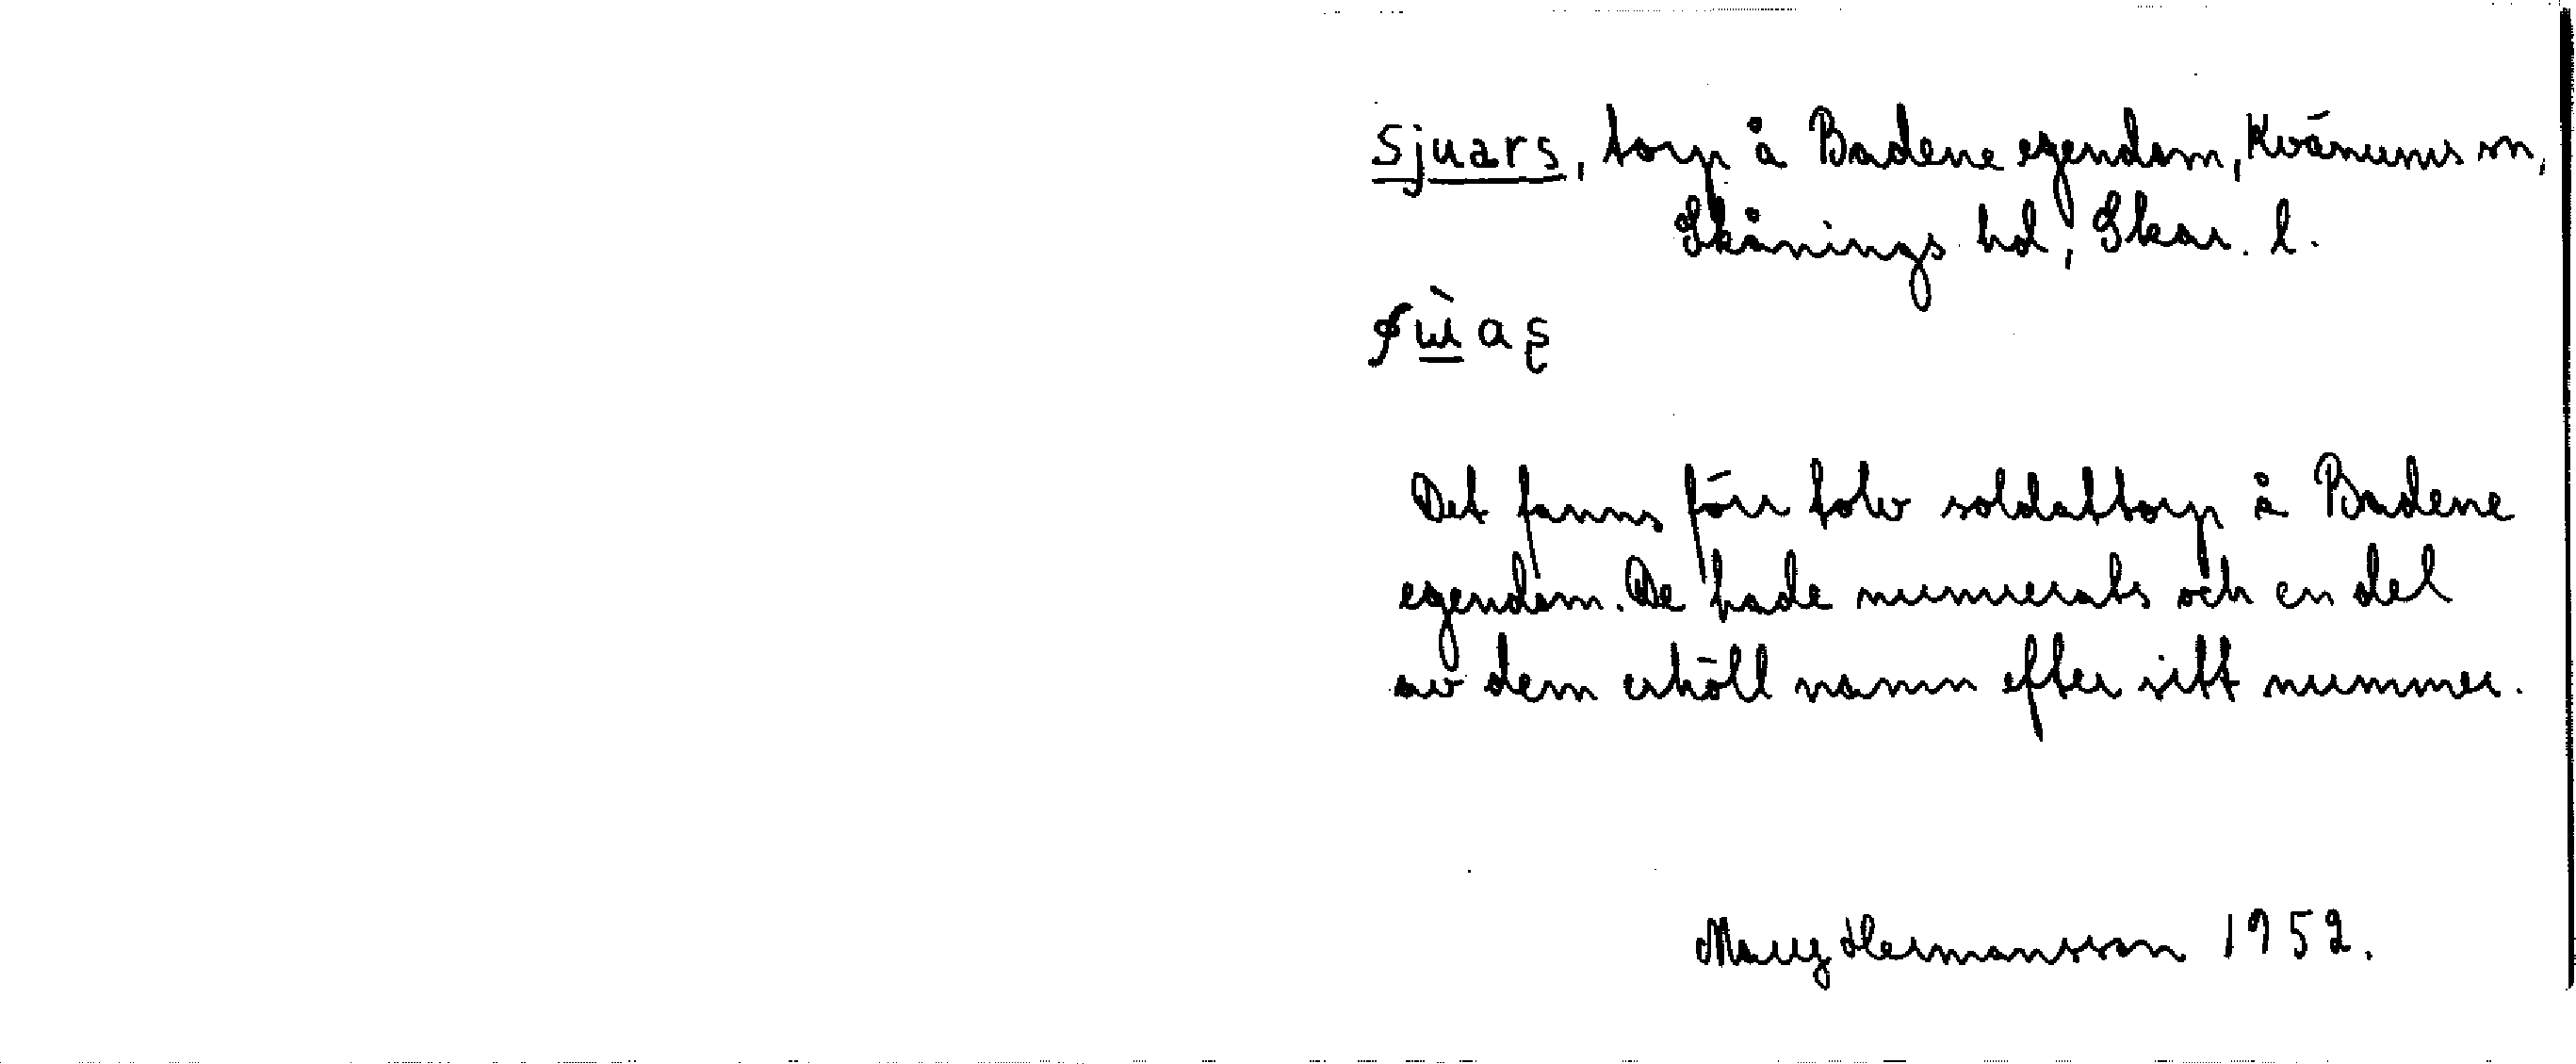 Sjuars, torp å Badene egendom, Kvänums sn,
Skånings hd, Skar. l.
Det fanns förr tolv soldattorp å Badene
egendom. De hade numrerats och en del
av dem erhöll namn efter sitt nummer.
Hermansson 1952.